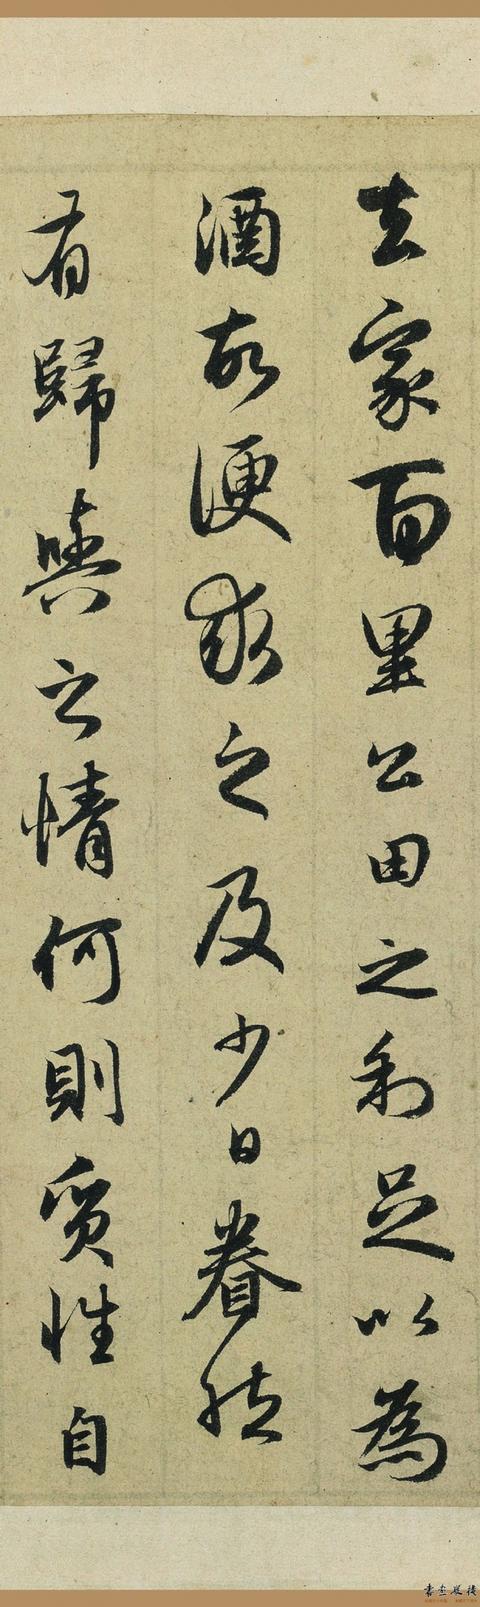 去家百里公田之利足以為
酒故便求之及少日眷然
有歸與之情何則質性自